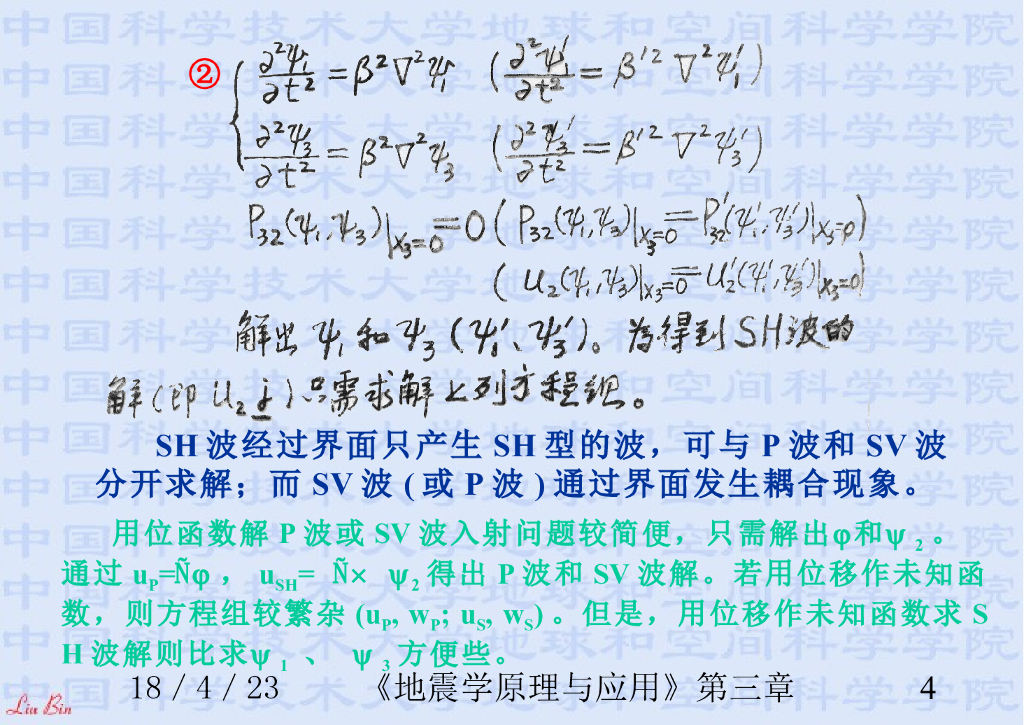 ② ∂²ψ₁/∂t² = β²∇²ψ₁ (∂²ψ₁′/∂t² = β′²∇²ψ₁′)
∂²ψ₃/∂t² = β²∇²ψ₃ (∂²ψ₃′/∂t² = β′²∇²ψ₃′)
P₃₂(ψ₁,ψ₃)|x₃=0 = 0 (P₃₂(ψ₁,ψ₃)|x₃=0 = P₃₂′(ψ₁′,ψ₃′)|x₃=0)
(u₂(ψ₁,ψ₃)|x₃=0 = u₂′(ψ₁′,ψ₃′)|x₃=0)
解出 ψ₁ 和 ψ₃ (ψ₁′、ψ₃′)。为得到 SH波的
解(即 u₂ j)只需求解上列方程组。
SH 波经过界面只产生 SH 型的波，可与 P 波和 SV 波
分开求解；而 SV 波 ( 或 P 波 ) 通过界面发生耦合现象。
用位函数解 P 波或 SV 波入射问题较简便，只需解出φ和ψ ₂ 。
通过 uP=Ñφ ， uSH= Ñ× ψ₂ 得出 P 波和 SV 波解。若用位移作未知函
数，则方程组较繁杂 (uP, wP; uS, wS) 。但是，用位移作未知函数求 S
H 波解则比求ψ ₁ 、 ψ ₃ 方便些。
18 / 4 / 23 《地震学原理与应用》第三章 4
Liu Bin
中国科学技术大学地球和空间科学学院